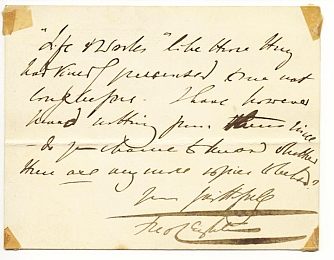 "Life & Works" like those they
had kindly presented to me not
long before. I have however
heard nothing from them since
- do you chance to know whether
there are any more copies to be had?
Yours faithfully
Fred Leighton